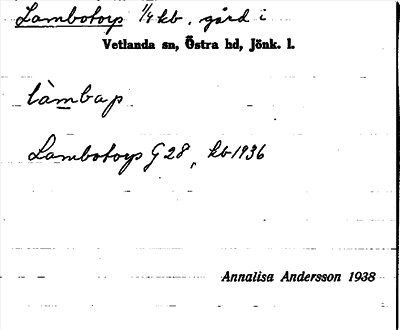 Lambotorp 1/4 kb. gård i
Vetlanda sn, Östra hd, Jönk. l.
làmbap
Lambotorp G 28, kb 1936
Annalisa Andersson 1938